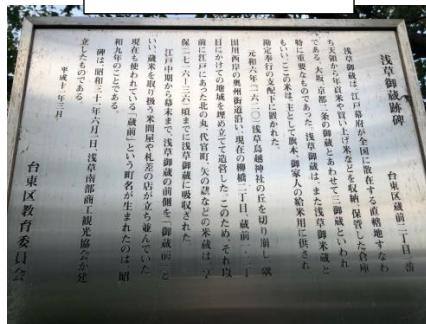 浅草御蔵跡碑
台東区蔵前二丁目一番
浅草御蔵は、江戸幕府が全国に散在する直轄地すなわ
ち天領から年貢米や買い上げ米などを収納、保管した倉庫
である。大阪、京都二条の御蔵とあわせて三御蔵といわれ
特に重要なものであった。浅草御蔵は、また浅草御米蔵と
もいい、ここの米は、主として旗本、御家人の給米用に供され
勘定奉行の支配下に置かれた。
元和六年(一六二〇)浅草鳥越神社の丘を切り崩し、隅
田川西岸の奥州街道沿い、現在の柳橋二丁目、蔵前一、二丁
目にかけての地域を埋め立てて造営した。このため、それ以
前に江戸にあった北の丸、代官町、矢の蔵などの米蔵は、享
保二(一七一六〜三六)頃までに浅草御蔵に吸収された。
江戸中期から幕末まで、浅草御蔵の前側を「御蔵前」と
いい、蔵米を取り扱う米問屋や札差の店が立ち並んでいた
現在も使われている「蔵前」という町名が生まれたのは、昭
和九年のことである。
碑は、昭和三十一年六月一日、浅草南部商工観光協会が建
立したものである。
平成十一年三月
台東区教育委員会